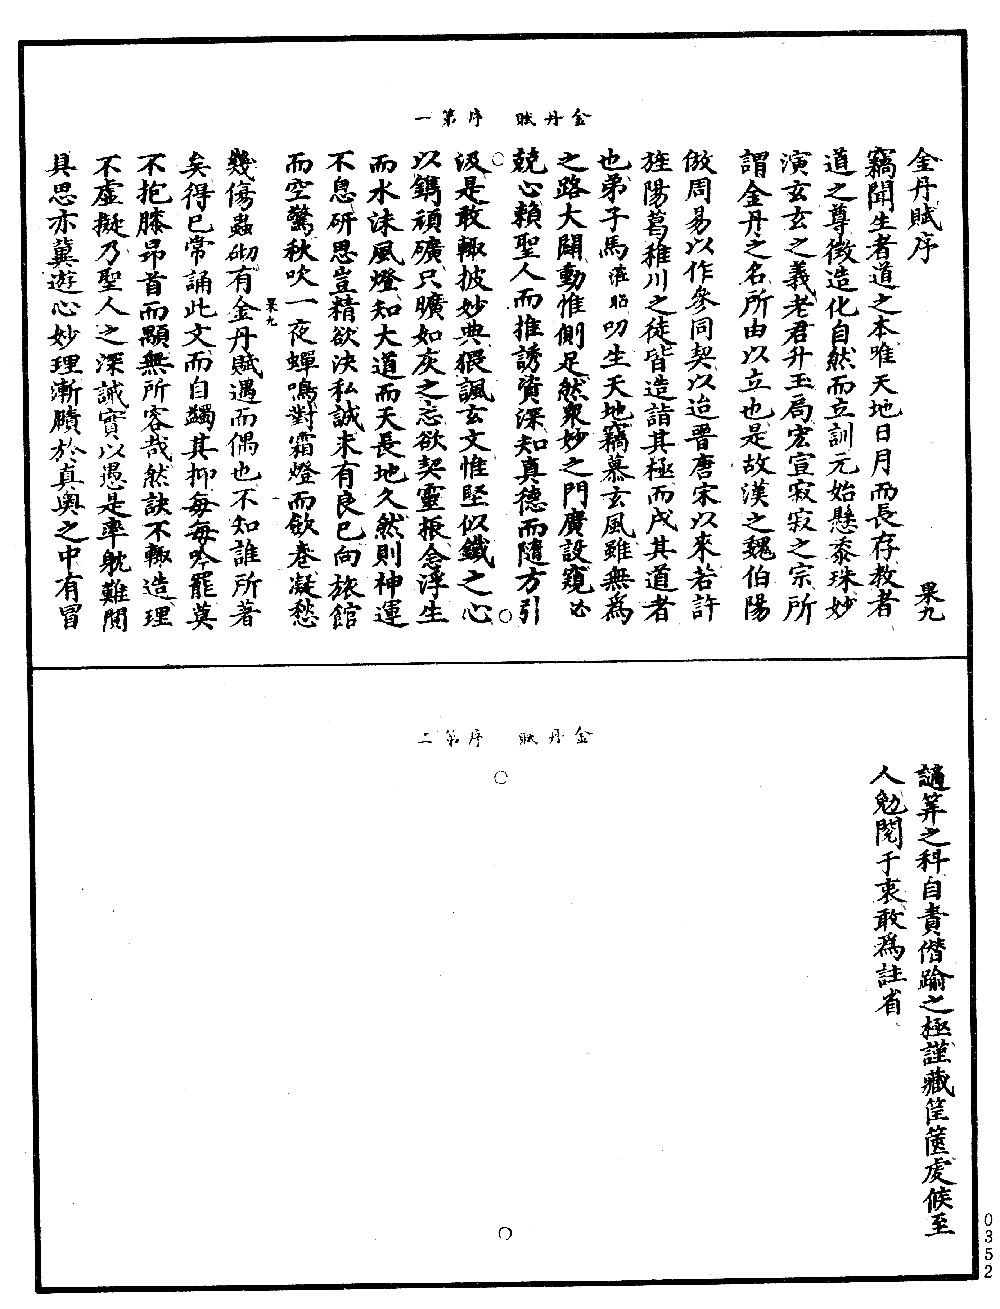 金丹賦　序第一
金丹賦序　果九
竊聞生者道之本唯天地日月而長存教者
道之尊徵造化自然而立訓元始懸黍珠妙
演玄玄之義老君升玉局宏宣寂寂之宗所
謂金丹之名所由以立也是故漢之魏伯陽
倣周易以作參同契以迨晉唐宋以來若許
旌陽葛稚川之徒皆造詣其極而成其道者
也弟子馬蒞昭叨生天地竊慕玄風雖無為
之路大闢動惟側足然衆妙之門廣設窺必
兢心賴聖人而推誘資深知真德而隨方引
汲是敢輙披妙典猥諷玄文惟堅似鐵之心
以鐫頑礦只曠如灰之志欲契靈根念浮生
而水沫風燈知大道而天長地久然則神運
不息研思豈精欲決私誠未有良已向旅館
而空驚秋吹一夜蟬鳴對霜燈而飲卷凝愁
果九
幾傷蟲砌有金丹賦遇而偶也不知誰所著
矣得已常誦此文而自蠲其抑每每吟罷莫
不抱膝昂首而顒無所容哉然訣不輙造理
不虛擬乃聖人之深誡實以愚是率躭難閱
具思亦冀遊心妙理漸賾於真奧之中有冒
金丹賦　序第二
譴筭之科自責僭踰之極謹藏筐篋虔候至
人勉閱于衷敢爲註省
0352